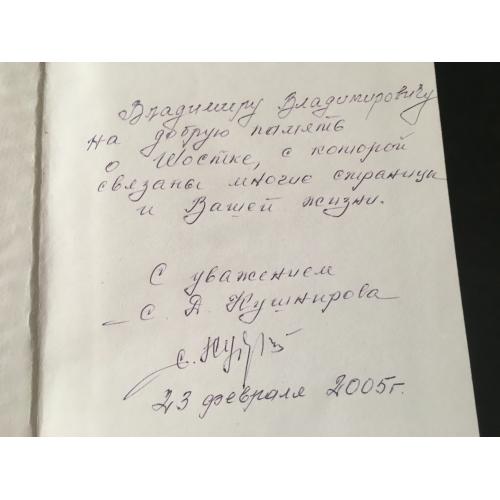 Владимиру Владимировичу
на добрую память
о Шостке, с которой
связаны многие страницы
и Вашей жизни.
С уважением
С. А. Кушнирова
23 февраля 2005г.